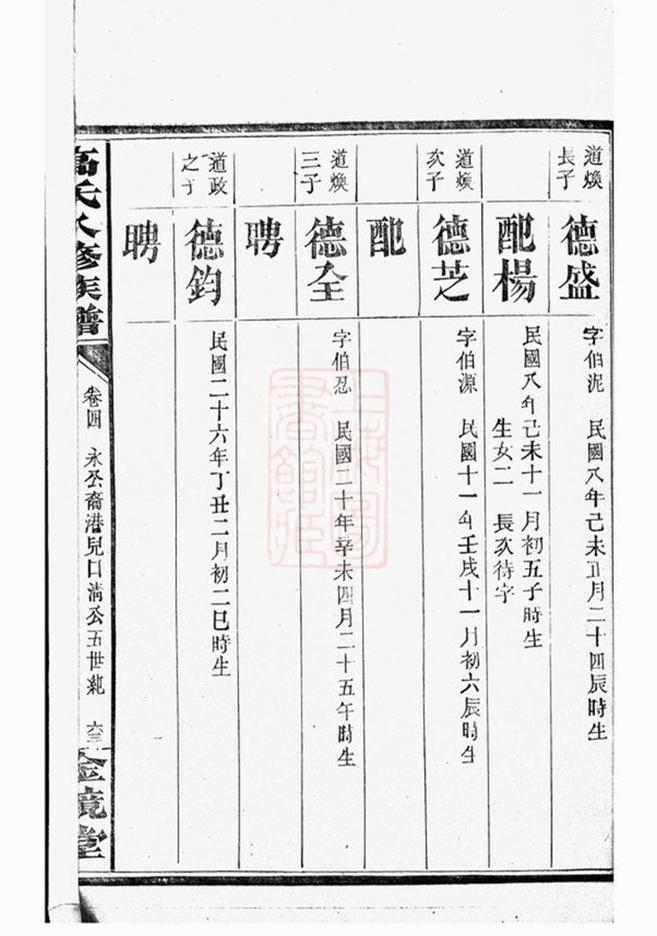 道煥長子
德盛
字伯泥 民國八年己未正月二十四辰時生
配楊
民國八年己未十一月初五子時生
生女二 長次待字
道煥次子
德芝
字伯源 民國十一年壬戌十一月初六辰時生
配
道煥三子
德全
字伯忍 民國二十年辛未四月二十五午時生
聘
道政之子
德鈞
民國二十六年丁丑二月初二巳時生
聘
高氏八修族譜
卷四 永公裔港兒口清公五世紀 六三
金鏡堂
上海圖書館藏